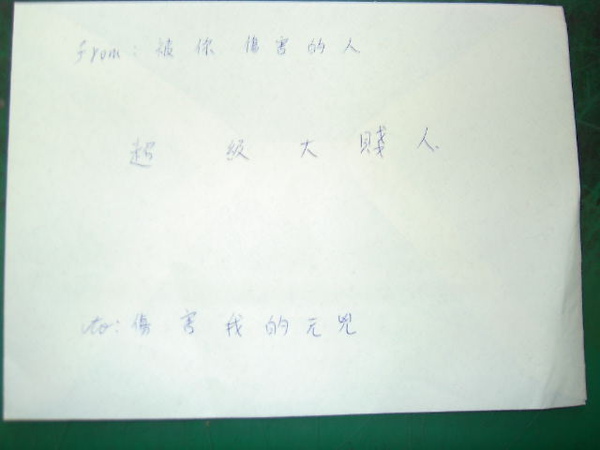 From: 被你傷害的人
超級大賤人
to: 傷害我的元兇